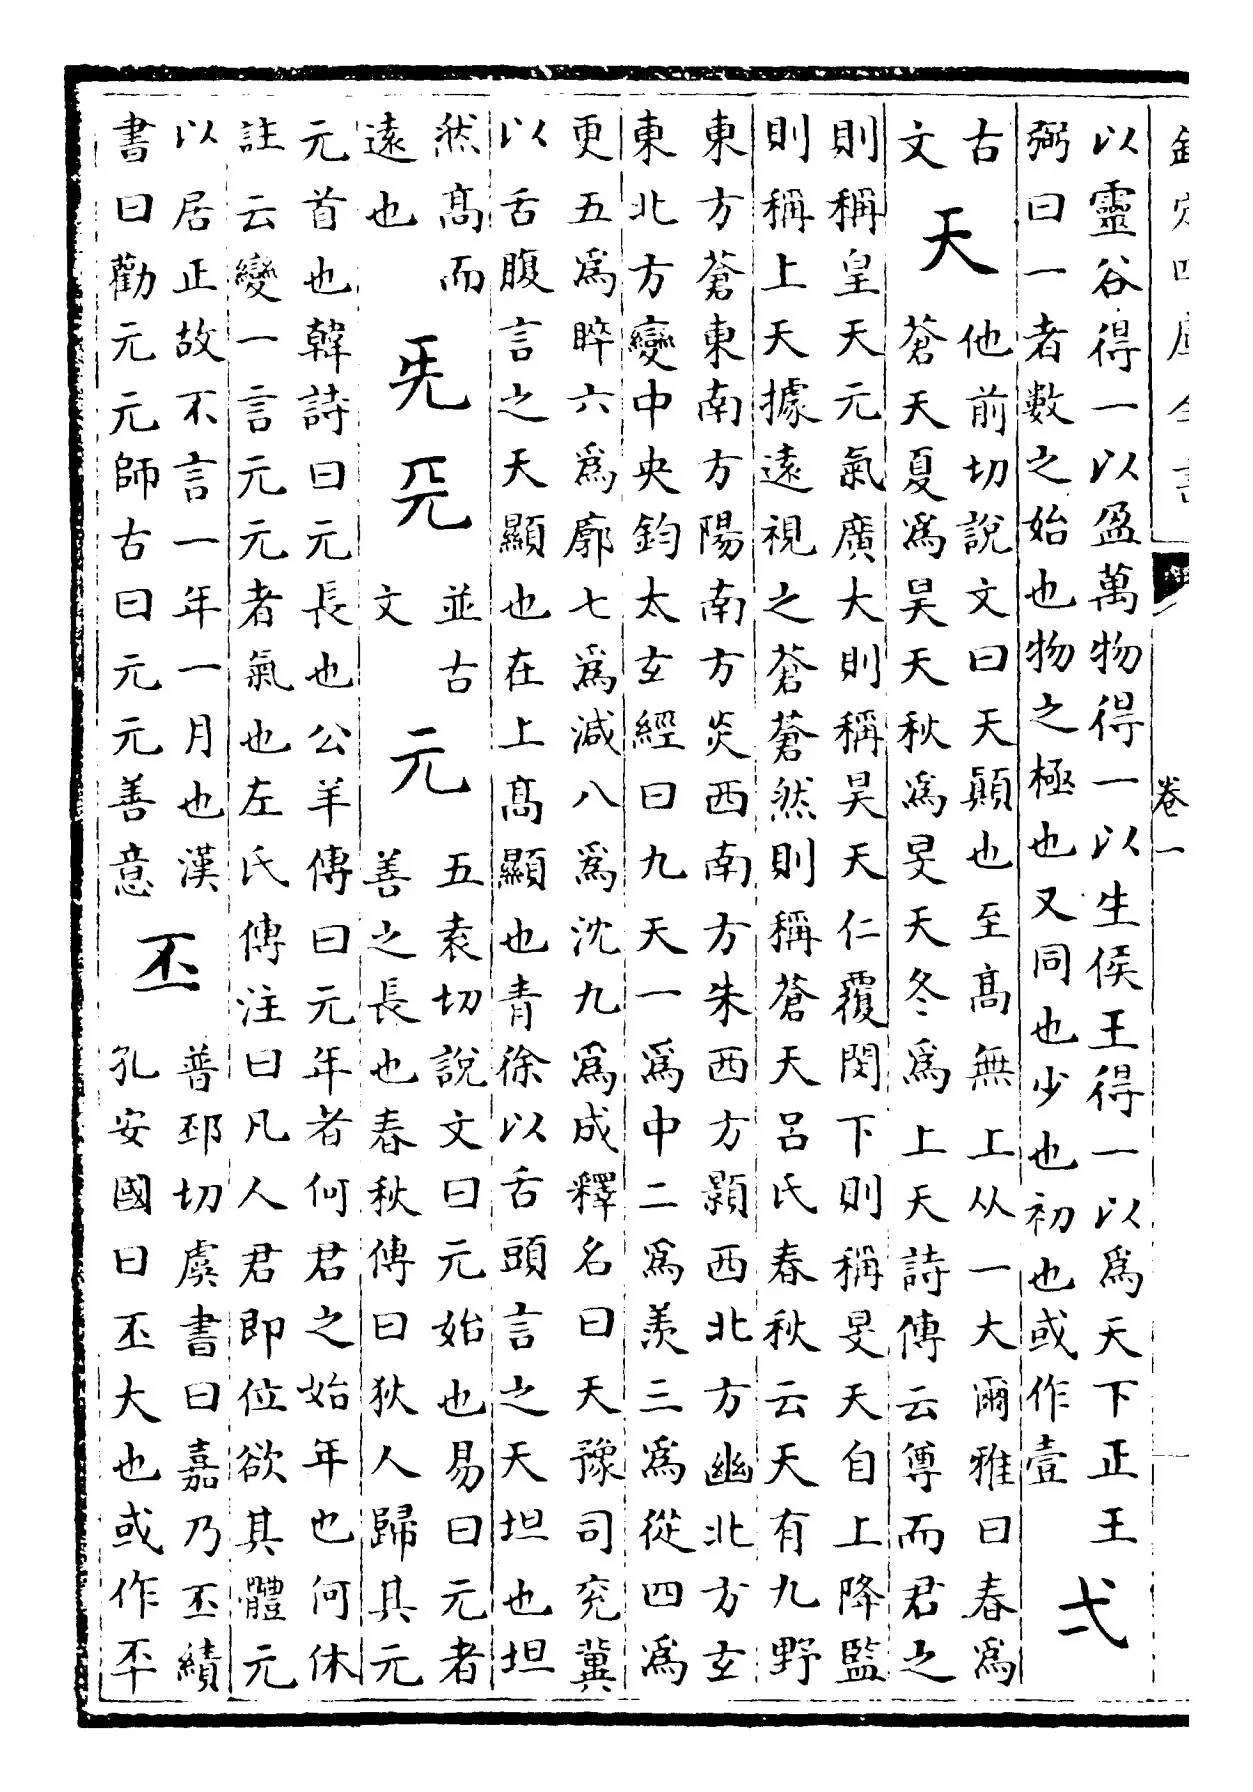 欽定四庫全書
卷一
以靈谷得一以盈萬物得一以生侯王得一以為天下正王
弼曰一者數之始也物之極也又同也少也初也或作壹
弌
古
文
天
他前切說文曰天顛也至髙無上从一大爾雅曰春為
蒼天夏為昊天秋為旻天冬為上天詩傳云尊而君之
則稱皇天元氣廣大則稱昊天仁覆閔下則稱旻天自上降監
則稱上天據遠視之蒼蒼然則稱蒼天吕氏春秋云天有九野
東方蒼東南方陽南方炎西南方朱西方顥西北方幽北方玄
東北方變中央鈞太玄經曰九天一為中二為羡三為從四為
更五為睟六為廓七為減八為沈九為成釋名曰天豫司兖冀
以舌腹言之天顯也在上髙顯也青徐以舌頭言之天坦也坦
然髙而
遠也
並古
文
元
五袁切說文曰元始也易曰元者
善之長也春秋傳曰狄人歸其元
元首也韓詩曰元長也公羊傳曰元年者何君之始年也何休
註云變一言元元者氣也左氏傳注曰凡人君即位欲其體元
以居正故不言一年一月也漢
書曰勸元元師古曰元元善意
丕
普邳切虞書曰嘉乃丕績
孔安國曰丕大也或作㔻